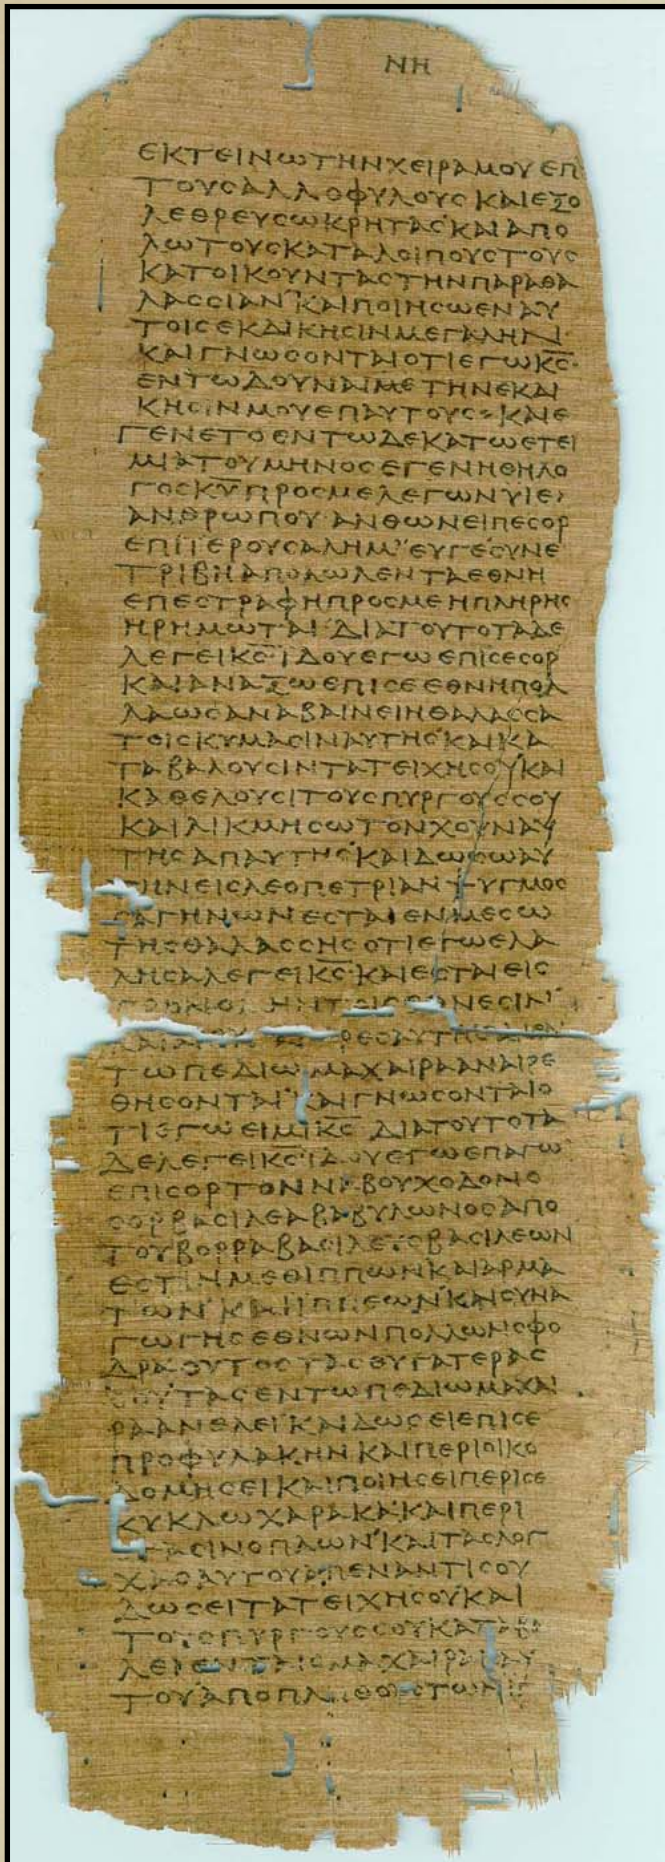 ΝΗ
ΕΚΤΕΙΝΩΤΗΝΧΕΙΡΑΜΟΥΕΠ
ΤΟΥϹΑΛΛΟΦΥΛΟΥϹΚΑΙΕΞΟ
ΛΕΘΡΕΥϹΩΚΡΗΤΑϹΚΑΙΑΠΟ
ΛΩΤΟΥϹΚΑΤΑΛΟΙΠΟΥϹΤΟΥϹ
ΚΑΤΟΙΚΟΥΝΤΑϹΤΗΝΠΑΡΑΘΑ
ΛΑϹϹΙΑΝΚΑΙΠΟΙΗϹΩΕΝΑΥ
ΤΟΙϹΕΚΔΙΚΗϹΙΝΜΕΓΑΛΗΝ
ΚΑΙΓΝΩϹΟΝΤΑΙΟΤΙΕΓΩΚ̅Ϲ̅
ΕΝΤΩΔΟΥΝΑΙΜΕΤΗΝΕΚΔΙ
ΚΗϹΙΝΜΟΥΕΠΑΥΤΟΥϹ:ΚΑΙΕ
ΓΕΝΕΤΟΕΝΤΩΔΕΚΑΤΩΕΤΕΙ
ΜΙΑΤΟΥΜΗΝΟϹΕΓΕΝΗΘΗΛΟ
ΓΟϹΚ̅Υ̅ΠΡΟϹΜΕΛΕΓΩΝΥΙΕ
ΑΝΘΡΩΠΟΥΑΝΘΩΝΕΙΠΕϹΟΡ
ΕΠΙΙΕΡΟΥϹΑΛΗΜΕΥΓΕϹΥΝΕ
ΤΡΙΒΗΑΠΟΛΩΛΕΝΤΑΕΘΝΗ
ΕΠΕϹΤΡΑΦΗΠΡΟϹΜΕΗΠΛΗΡΗϹ
ΗΡΗΜΩΤΑΙΔΙΑΤΟΥΤΟΤΑΔΕ
ΛΕΓΕΙΚ̅Ϲ̅ΙΔΟΥΕΓΩΕΠΙϹΕϹΟΡ
ΚΑΙΑΝΑΞΩΕΠΙϹΕΕΘΝΗΠΟΛ
ΛΑΩϹΑΝΑΒΑΙΝΕΙΗΘΑΛΑϹϹΑ
ΤΟΙϹΚΥΜΑϹΙΝΑΥΤΗϹΚΑΙΚΑ
ΤΑΒΑΛΟΥϹΙΝΤΑΤΕΙΧΗϹΟΥΚΑΙ
ΚΑΘΕΛΟΥϹΙΤΟΥϹΠΥΡΓΟΥϹϹΟΥ
ΚΑΙΛΙΚΜΗϹΩΤΟΝΧΟΥΝΑΥ
ΤΗϹΑΠΑΥΤΗϹΚΑΙΔΩϹΩΑΥ
ΤΗΝΕΙϹΛΕΟΠΕΤΡΙΑΝΨΥΓΜΟϹ
ϹΑΓΗΝΩΝΕϹΤΑΙΕΝΜΕϹΩ
ΤΗϹΘΑΛΑϹϹΗϹΟΤΙΕΓΩΕΛΑ
ΛΗϹΑΛΕΓΕΙΚ̅Ϲ̅ΚΑΙΕϹΤΑΙΕΙϹ
ΤΩΠΕΔΙΩΜΑΧΑΙΡΑΑΝΑΙΡΕ
ΘΗϹΟΝΤΑΙΚΑΙΓΝΩϹΟΝΤΑΙΟ
ΤΙΕΓΩΕΙΜΙΚ̅Ϲ̅ΔΙΑΤΟΥΤΟΤΑ
ΔΕΛΕΓΕΙΚϹΙΔΟΥΕΓΩΕΠΑΓΩ
ΕΠΙϹΟΡΤΟΝΝΑΒΟΥΧΟΔΟΝΟ
ϹΟΡΒΑϹΙΛΕΑΒΑΒΥΛΩΝΟϹΑΠΟ
ΤΟΥΒΟΡΡΑΒΑϹΙΛΕΥϹΒΑϹΙΛΕΩΝ
ΕϹΤΙΝΜΕΘΙΠΠΩΝΚΑΙΑΡΜΑ
ΤΩΝΚΑΙΙΠΠΕΩΝΚΑΙϹΥΝΑ
ΓΩΓΗϹΕΘΝΩΝΠΟΛΛΩΝϹΦΟ
ΔΡΑΟΥΤΟϹΤΑϹΘΥΓΑΤΕΡΑϹ
ϹΟΥΤΑϹΕΝΤΩΠΕΔΙΩΜΑΧΑΙ
ΡΑΑΝΕΛΕΙΚΑΙΔΩϹΕΙΕΠΙϹΕ
ΠΡΟΦΥΛΑΚΗΝΚΑΙΠΕΡΙΟΙΚΟ
ΔΟΜΗϹΕΙΚΑΙΠΟΙΗϹΕΙΠΕΡΙϹΕ
ΚΥΚΛΩΧΑΡΑΚΑΚΑΙΠΕΡΙ
ϹΤΑϹΙΝΟΠΛΩΝΚΑΙΤΑϹΛΟΓ
ΧΑϹΑΥΤΟΥΑΠΕΝΑΝΤΙϹΟΥ
ΔΩϹΕΙΤΑΤΕΙΧΗϹΟΥΚΑΙ
ΤΟΥϹΠΥΡΓΟΥϹϹΟΥΚΑΤΑΒΑ
ΛΕΙΕΝΤΑΙϹΜΑΧΑΙΡΑΙϹΑΥ
ΤΟΥΑΠΟΠΛΗΘΟΥϹΤΩΝ